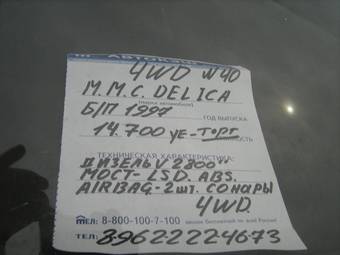 4WD N40
M.M.C. DELICA
(марка автомобиля)
Б/П 1997 ГОД ВЫПУСКА
14.700 уе-торг
ТЕХНИЧЕСКАЯ ХАРАКТЕРИСТИКА:
ДИЗЕЛЬ V 2800И
МОСТ-LSD. ABS.
AIRBAG-2шт. СОНАРЫ
4WD.
ТЕЛ: 8-800-100-7-100 звонок бесплатный по всей России
ТЕЛ: 89622224673